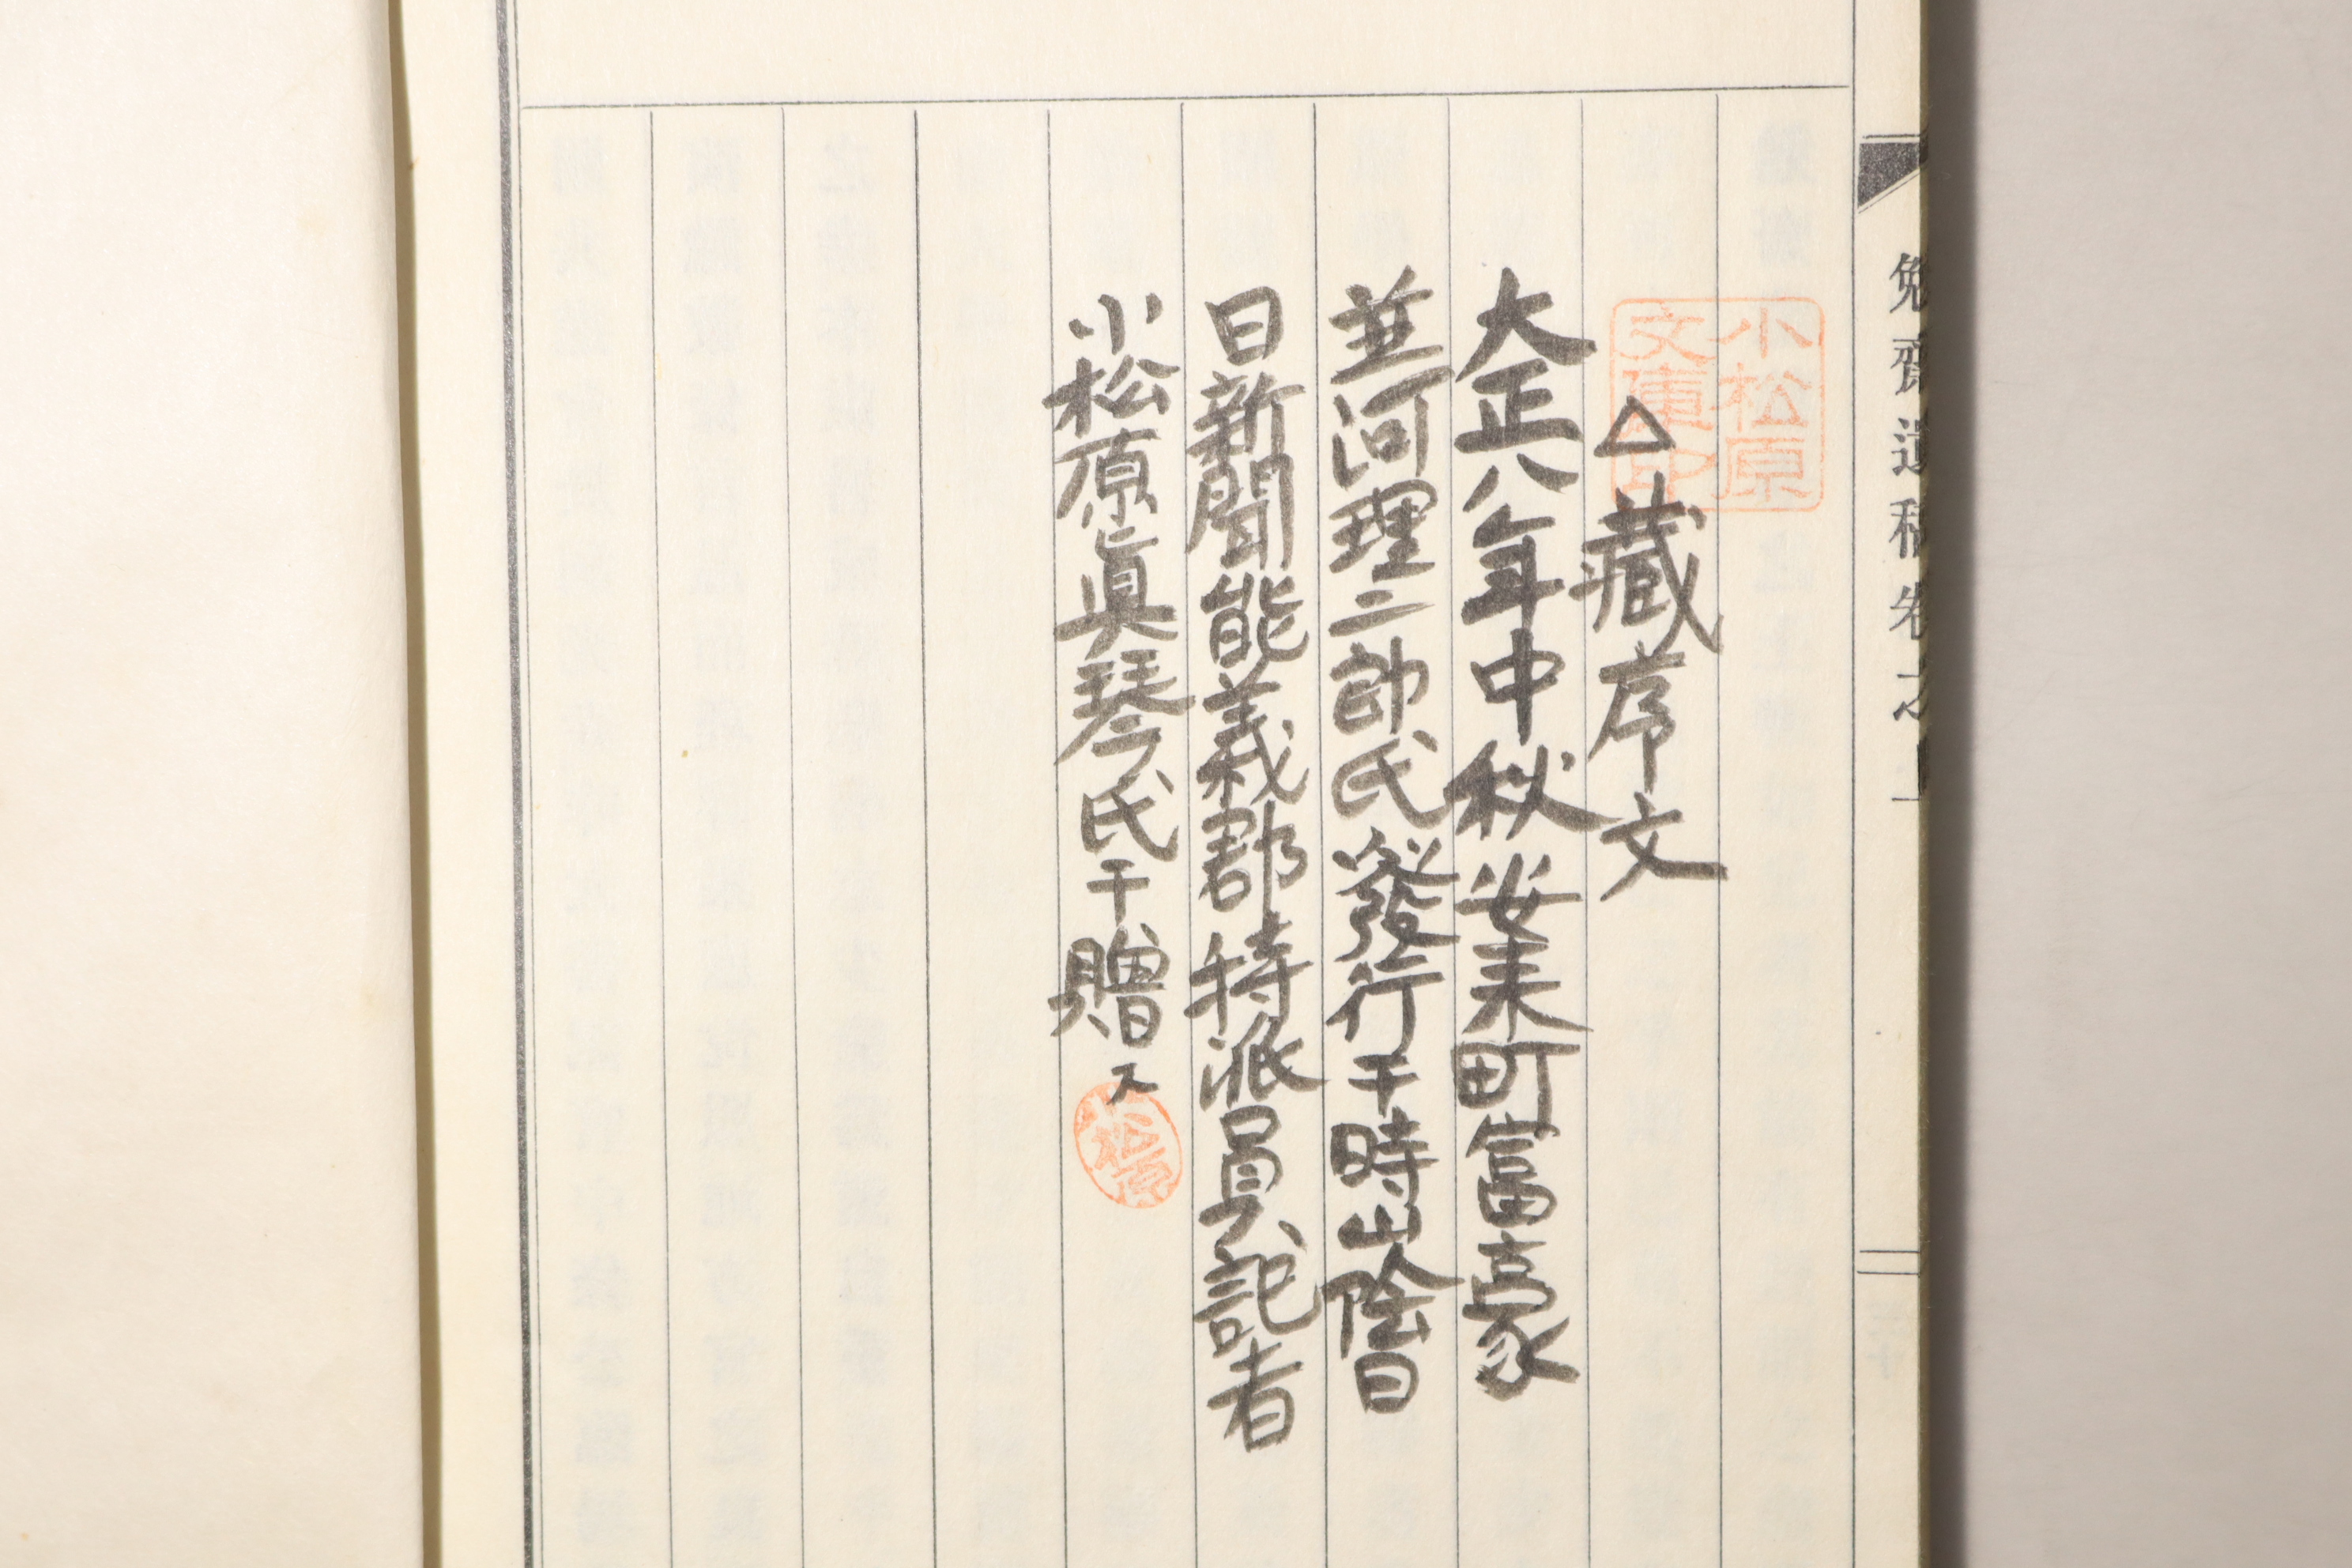 勉齋遺稿卷之
小松原
文庫印
△藏序文
大正八年中秋安来町富豪
並河理二郎氏發行干時山陰日
日新聞能義郡特派員記者
小松原眞琴氏干贈ス
小松原